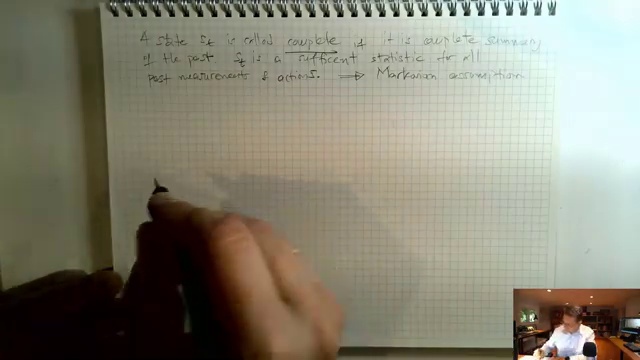 A state St is called complete if it is complete summary
of the past. St is a sufficent statistic for all
past measurements & actions. ⟹ Markovian assumption